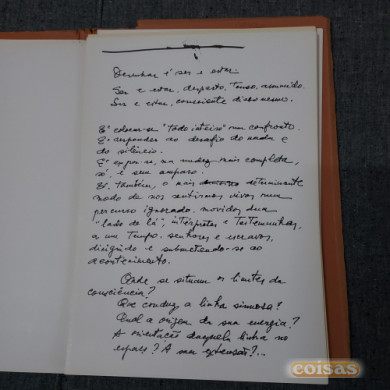 Desenhar é ser e estar.
Ser e estar, desperto. Tenso, reunido.
Ser e estar, consciente disso mesmo.
É colocar-se "todo inteiro" num confronto.
É responder ao desafio do nada e
do silêncio.
É expor-se, na nudez mais completa,
só, e sem amparo.
É, também, o mais determinante
modo de nos sentirmos vivos num
percurso ignorado, movidos dum
"lado de lá", intérpretes e testemunhas,
a um tempo, senhores e escravos,
dirigindo e submetendo-se ao
acontecimento.
Onde se situam os limites da
consciência?
Que conduz a linha sinuosa?
Qual a origem da sua energia?
A orientação daquela linha no
espaço? A sua extensão?...
coisas